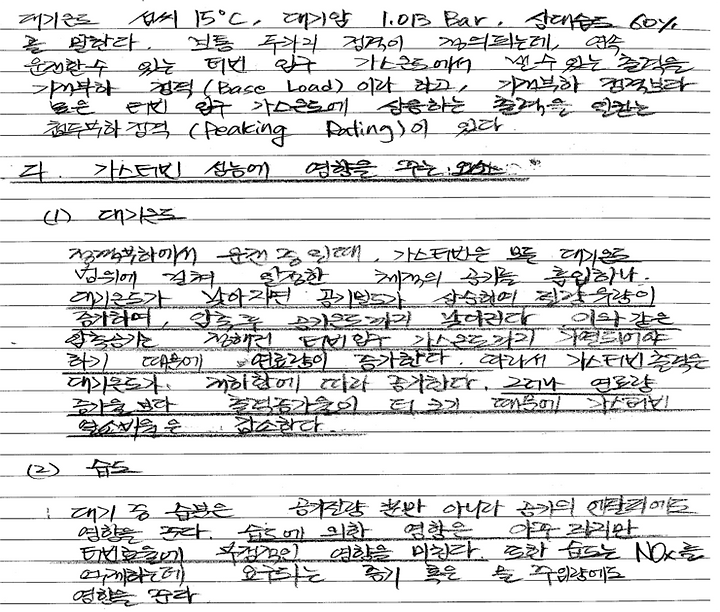 대기온도 섭씨 15°C, 대기압 1.013 Bar, 상대습도 60%
를 말한다. 보통 두가지 정격이 정의되는데, 연속
운전할수 있는 터빈 입구 가스온도에서 낼수 있는 출력을
기저부하 정격 (Base Load) 이라 하고, 기저부하 정격보다
높은 터빈 입구 가스온도에 상응하는 출력을 일컫는
첨두부하 정격 (Peaking Rating)이 있다
다. 가스터빈 성능에 영향을 주는 요소
(1) 대기온도
정격부하에서 운전 중 일때, 가스터빈은 모든 대기온도
범위에 걸쳐 일정한 체적의 공기를 흡입하나.
대기온도가 낮아지면 공기밀도가 상승하여 질량유량이
증가하며, 압축후 공기온도까지 낮아진다 이와 같은
압축공기는 정해진 터빈입구 가스온도까지 가열되어야
하기 때문에 연료량이 증가한다. 따라서 가스터빈 출력은
대기온도가 저하함에 따라 증가한다. 그러나 연료량
증가율 보다 출력증가율이 더 크기 때문에 가스터빈
열소비율은 감소한다.
(2) 습도
대기 중 습분은 공기질량 뿐만 아니라 공기의 엔탈피에도
영향을 준다. 습도에 의한 영향은 아주 작지만
터빈효율에 부정적인 영향을 미친다. 또한 습도는 NOx를
억제하는데 요구되는 증기 혹은 물 주입량에도
영향을 준다